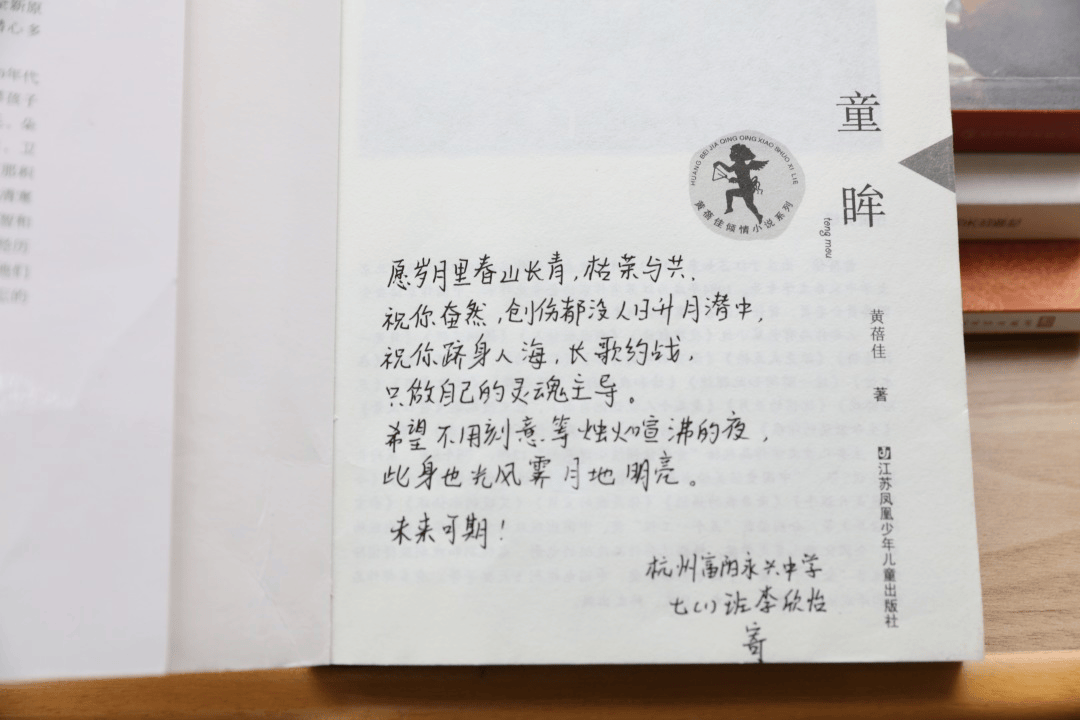 全新原
情心多
年代
孩子
朵
卫
那积
智和
经历
他们
的
童眸
tong mou
HUANG BEI JIA QING QING XIAO SHUO XI LIE
黄蓓佳倾情小说系列
愿岁月里春山长青,枯荣与共,
祝你奋然,创伤都没入日升月潜中,
祝你跻身人海,长歌约战,
只做自己的灵魂主导。
希望不用刻意等烛火喧沸的夜,
此身也光风霁月地明亮。
未来可期!
杭州富阳永兴中学
七(1)班李欣怡
寄
黄蓓佳 著
江苏凤凰少年儿童出版社